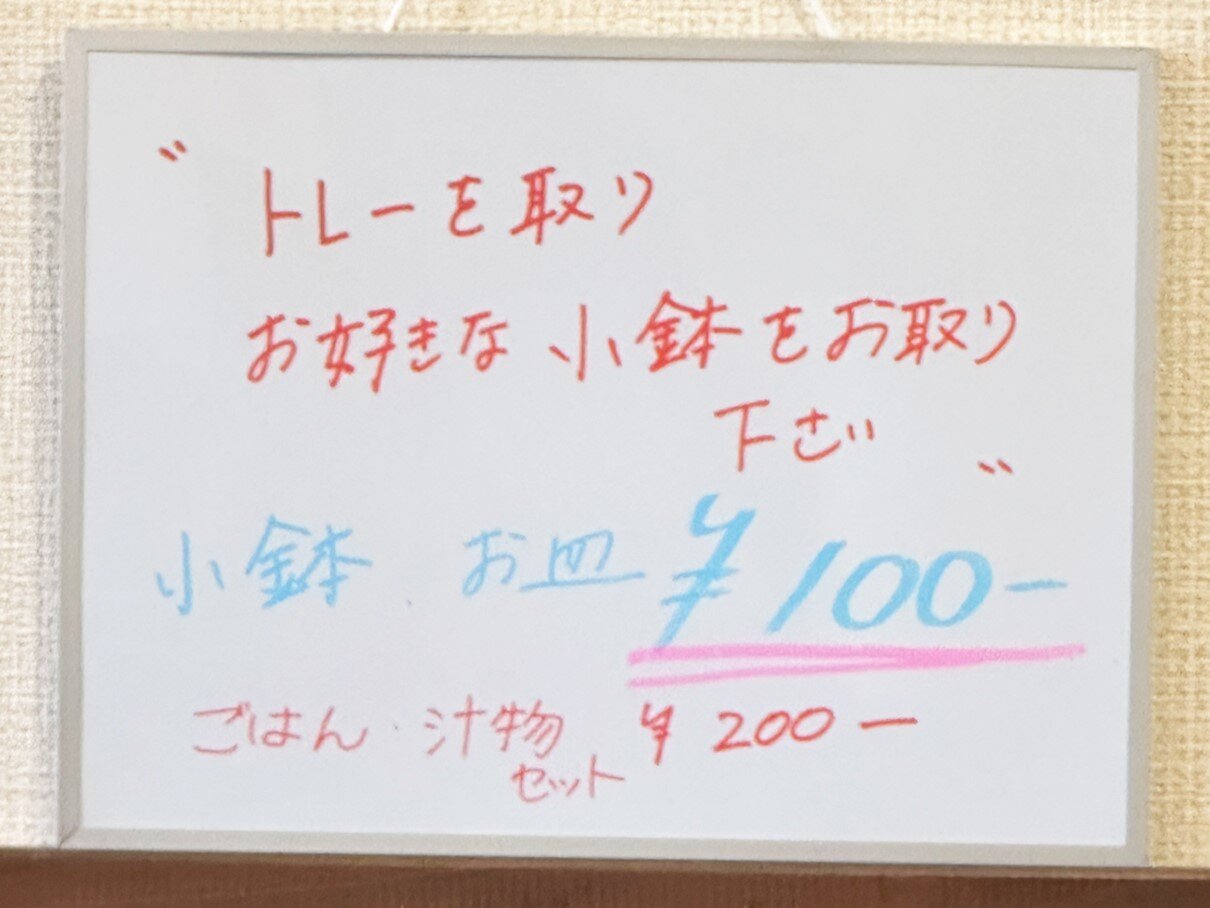 〃トレーを取り
お好きな小鉢をお取り
下さい〃
小鉢 お皿 ¥100-
ごはん・汁物 ¥200-
セット